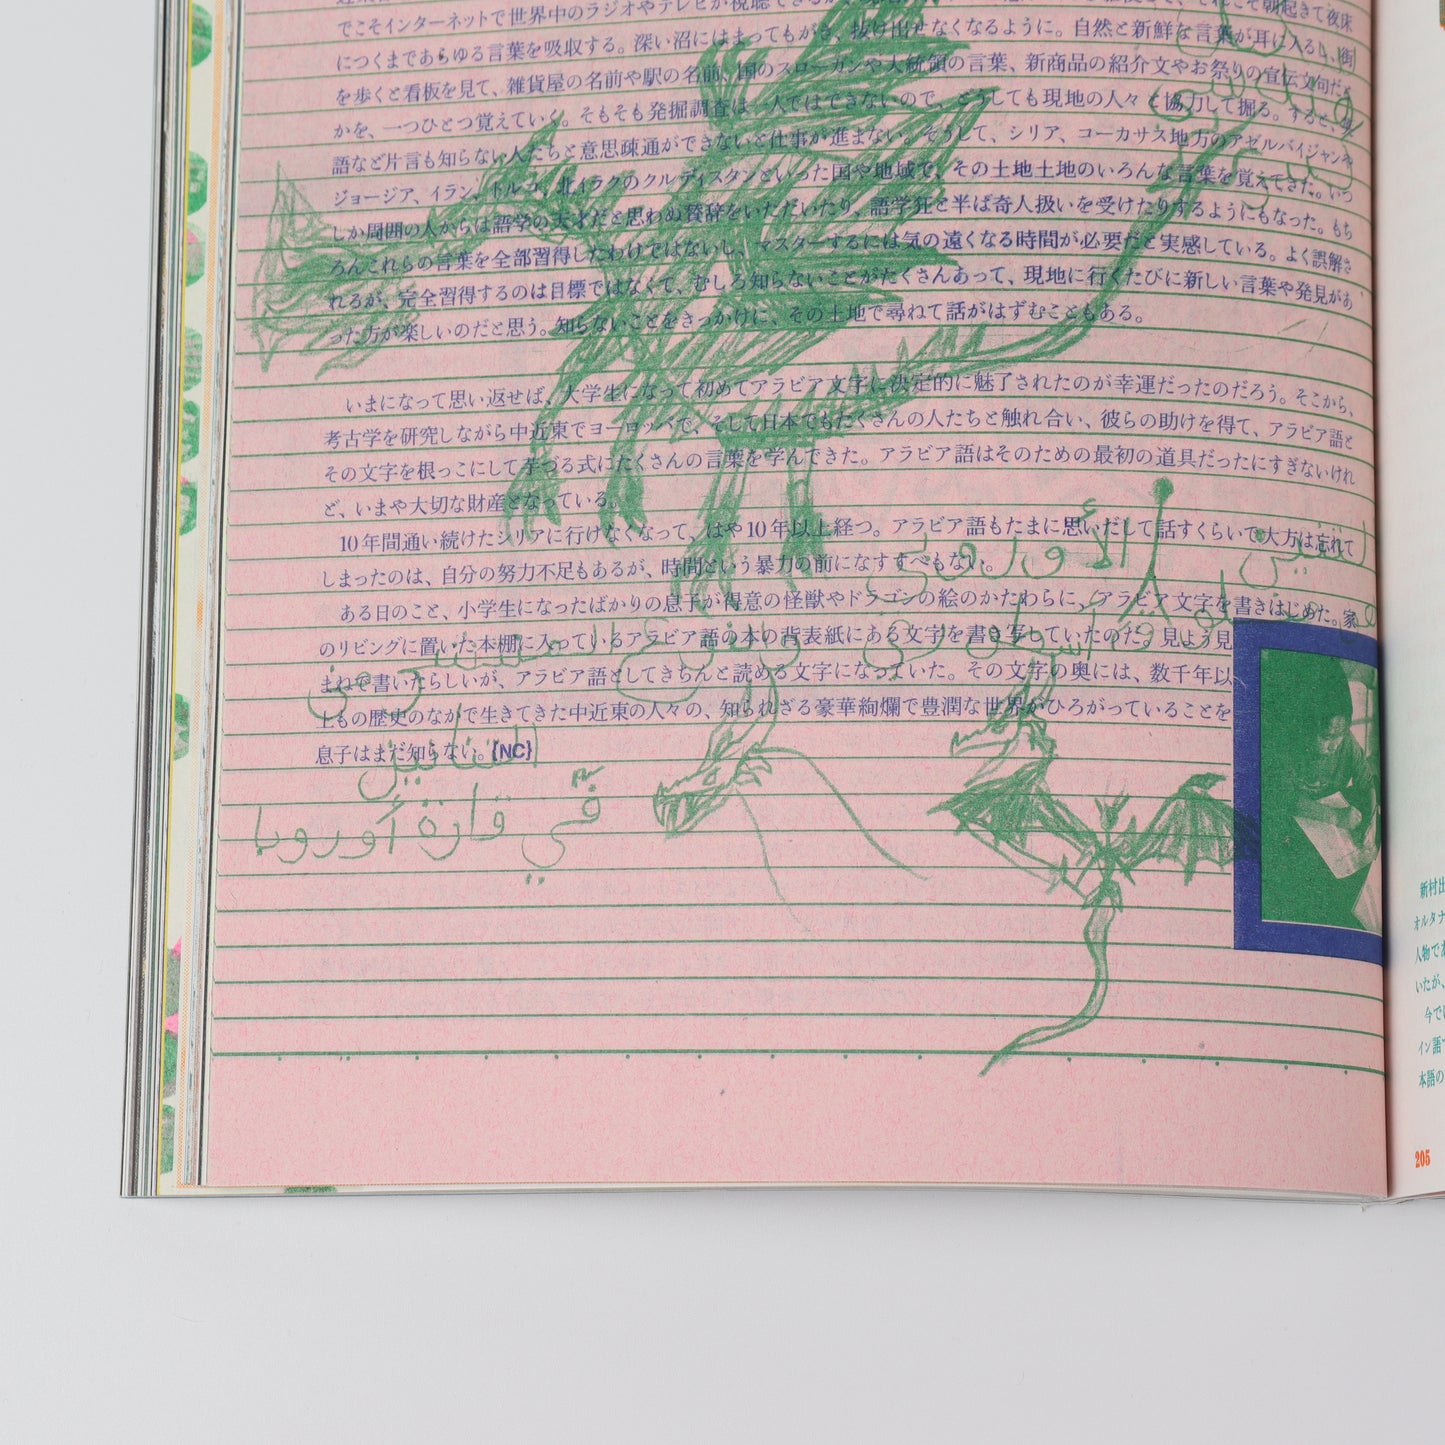 でこそインターネットで世界中のラジオやテレビが視聴できるが、
につくまであらゆる言葉を吸収する。深い沼にはまってもがき、抜け出せなくなるように。自然と新鮮な言葉が耳に入るし、街
を歩くと看板を見て、雑貨屋の名前や駅の名前、国のスローガンや大統領の言葉、新商品の紹介文やお祭りの宣伝文句だと
かを、一つひとつ覚えていく。そもそも発掘調査は一人ではできないので、どうしても現地の人々と協力して掘る。すると、
語など片言も知らない人たちと意思疎通ができないと仕事が進まない。そうして、シリア、コーカサス地方のアゼルバイジャンや
ジョージア、イラン、トルコ、北イラクのクルディスタンといった国や地域で、その土地土地のいろんな言葉を覚えてきた。いつ
しか周囲の人からは語学の天才だと思わぬ賛辞をいただいたり、語学狂と半ば奇人扱いを受けたりするようにもなった。もち
ろんこれらの言葉を全部習得したわけではないし、マスターするには気の遠くなる時間が必要だと実感している。よく誤解さ
れるが、完全習得するのは目標ではなくて、むしろ知らないことがたくさんあって、現地に行くたびに新しい言葉や発見があ
った方が楽しいのだと思う。知らないことをきっかけに、その土地で尋ねて話がはずむこともある。
いまになって思い返せば、大学生になって初めてアラビア文字に決定的に魅了されたのが幸運だったのだろう。そこから、
考古学を研究しながら中近東でヨーロッパで、そして日本でもたくさんの人たちと触れ合い、彼らの助けを得て、アラビア語と
その文字を根っこにして芋づる式にたくさんの言葉を学んできた。アラビア語はそのための最初の道具だったにすぎないけれ
ど、いまや大切な財産となっている。
10年間通い続けたシリアに行けなくなって、はや10年以上経つ。アラビア語もたまに思いだして話すくらいで大方は忘れて
しまったのは、自分の努力不足もあるが、時間という暴力の前になすすべもない。
ある日のこと、小学生になったばかりの息子が得意の怪獣やドラゴンの絵のかたわらに、アラビア文字を書きはじめた。家
のリビングに置いた本棚に入っているアラビア語の本の背表紙にある文字を書き写していたのだ。見よう見
まねで書いたらしいが、アラビア語としてきちんと読める文字になっていた。その文字の奥には、数千年以
上もの歴史のなかで生きてきた中近東の人々の、知られざる豪華絢爛で豊潤な世界がひろがっていることを
息子はまだ知らない。{NC}
في قارة أوروبا
オルタナ
人物で
いたが、
今で
イン語
本語の
205